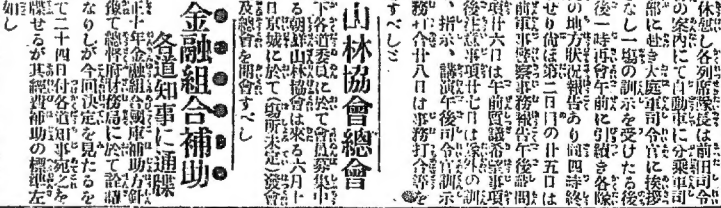 休憩し各列席隊長は前田司令
の案内にて自動車に分乗軍司
部に赴き大庭軍司令官に挨拶
なし一場の訓示を受けたる後
後一時再會午前に引續き各隊
の地方狀況報告あり同四時終
せり尚ほ第二日目の廿五日は
項廿六日は午前質議希望事項
前軍事警察事務報告午後諮問
後注意事項廿七日は
、指示、講演午後司令官訓示
務打合廿八日は事務打合等を
すべしと
山林協會總會
下各道委員に於て會員募集中
る朝鮮山林協會は來る六月十
日京城に於て(場所未定)發會
及總會を開會すべし
金融組合補助
各道知事に通牒
正十年金融組合國庫補助方針
後て總督府財務局に於て詮議
なりしが今回決定を見たるを
て二十四日付各道知事宛之を
牒せるが其經費補助の標準左
如し